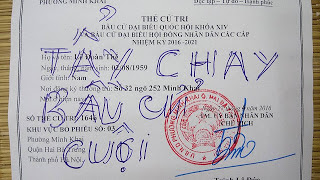 PHƯỜNG MINH KHAI
Độc lập - Tự do - Hạnh phúc
THẺ CỬ TRI
BẦU CỬ ĐẠI BIỂU QUỐC HỘI KHÓA XIV
BẦU CỬ ĐẠI BIỂU HỘI ĐỒNG NHÂN DÂN CÁC CẤP
NHIỆM KỲ 2016 -2021
TẨY CHAY
BẦU CỬ
CUỘI
Họ và tên: Nhân Thọ
02/08/1959
Giới tính: Nam
Số 32 ngõ 252 Minh Khai
SỐ THẺ CỬ TRI 1646
KHU VỰC BỎ PHIẾU SỐ: 03
Phường Minh Khai
Quận Hai Bà Trưng
Thành phố Hà Nội,
năm 2016
TM. ỦY BAN NHÂN DÂN
CHỦ TỊCH